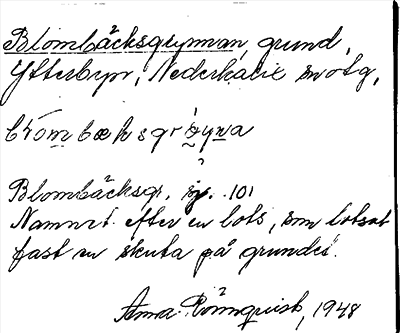 Blombäcksgrynnan, grund,
Ytterbyn, Nederkalix
blombæksgrynna
Blombäcksgr. 101
Namnet efter en lots, som lotsat
fast en skuta på grundet.
Anna Rönnquist, 1948